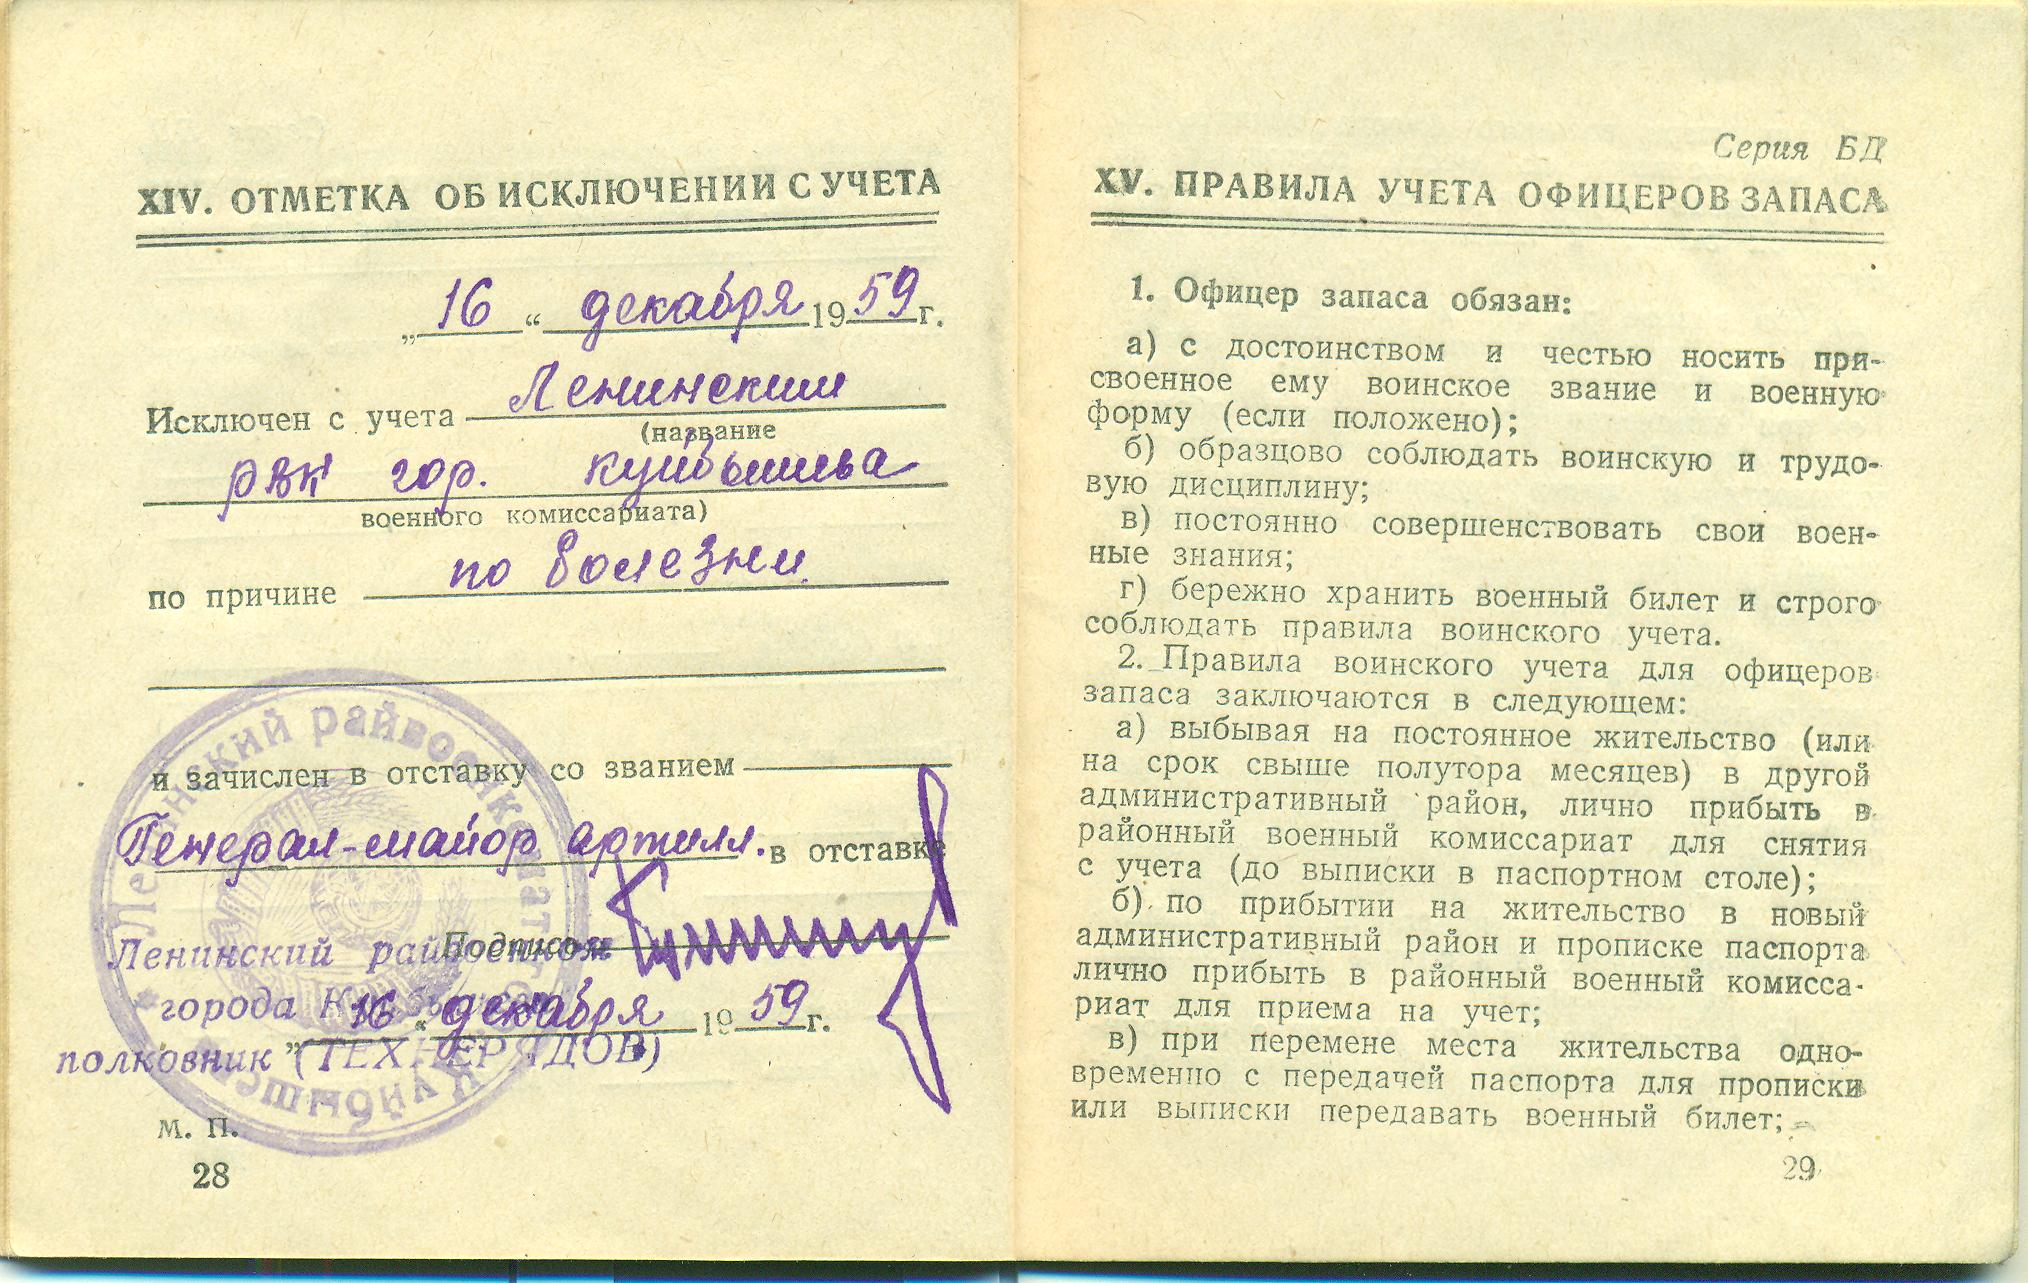 XIV. ОТМЕТКА ОБ ИСКЛЮЧЕНИИ С УЧЕТА
„16“ декабря 1959 г.
Исключен с учета Ленинским
(название
РВК гор. Куйбышева
военного комиссариата)
по причине по болезни
и зачислен в отставку со званием
Генерал-майор артилл. в отставке
Ленинский райвоенкомат
Куйбышева
Подпись
Ленинский райвоенком
города Куйбышева
„16“ декабря 1959 г.
полковник (ТЕХНЕРЯДОВ)
М. П.
28
Серия БД
XV. ПРАВИЛА УЧЕТА ОФИЦЕРОВ ЗАПАСА
1. Офицер запаса обязан:
а) с достоинством и честью носить при-
своенное ему воинское звание и военную
форму (если положено);
б) образцово соблюдать воинскую и трудо-
вую дисциплину;
в) постоянно совершенствовать свои воен-
ные знания;
г) бережно хранить военный билет и строго
соблюдать правила воинского учета.
2. Правила воинского учета для офицеров
запаса заключаются в следующем:
а) выбывая на постоянное жительство (или
на срок свыше полутора месяцев) в другой
административный район, лично прибыть в
районный военный комиссариат для снятия
с учета (до выписки в паспортном столе);
б) по прибытии на жительство в новый
административный район и прописке паспорта
лично прибыть в районный военный комисса-
риат для приема на учет;
в) при перемене места жительства одно-
временно с передачей паспорта для прописки
или выписки передавать военный билет;
29